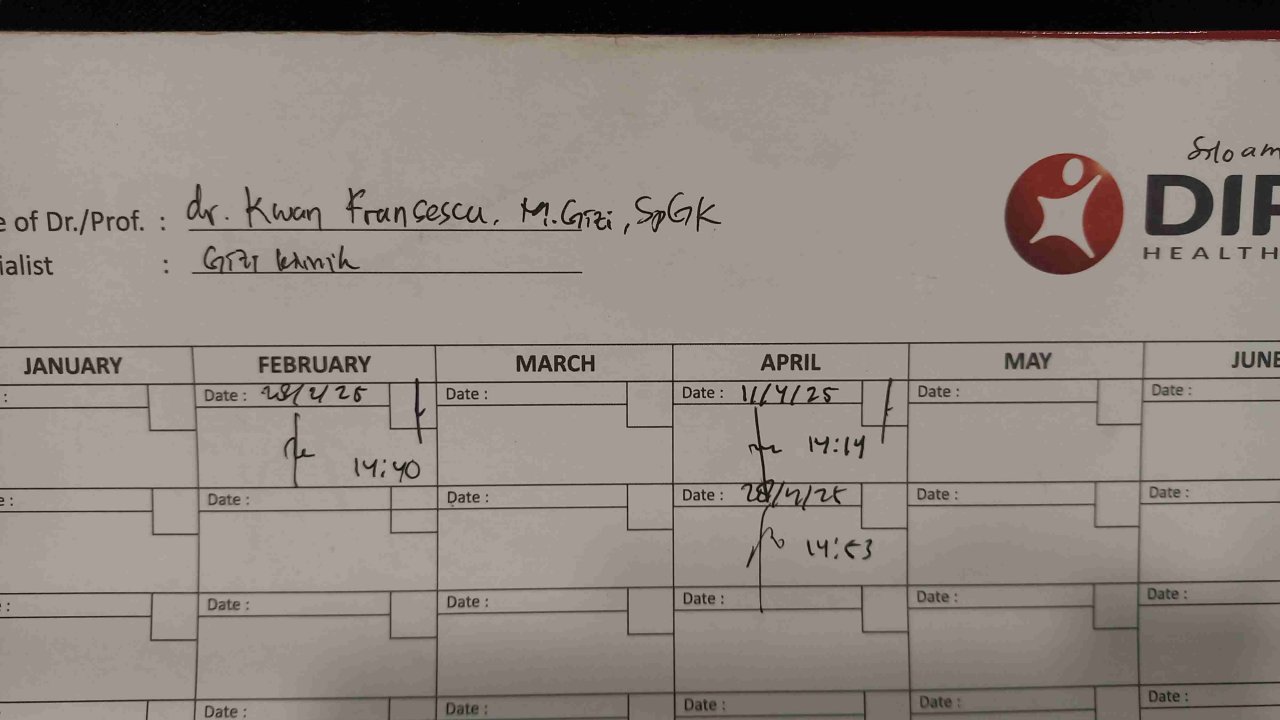 Siloam
DIP
HEALTH
e of Dr./Prof. : dr. Kwan Francesca, M.Gizi, SpGK
ialist : Gizi klinik
JANUARY FEBRUARY MARCH APRIL MAY JUNE
: Date : 28/2/25 Date : Date : 11/4/25 Date : Date :
14:40 14:14
e : Date : Date : Date : 28/4/25 Date : Date :
14:53
: Date : Date : Date : Date : Date :
Date : Date : Date : Date : Date :